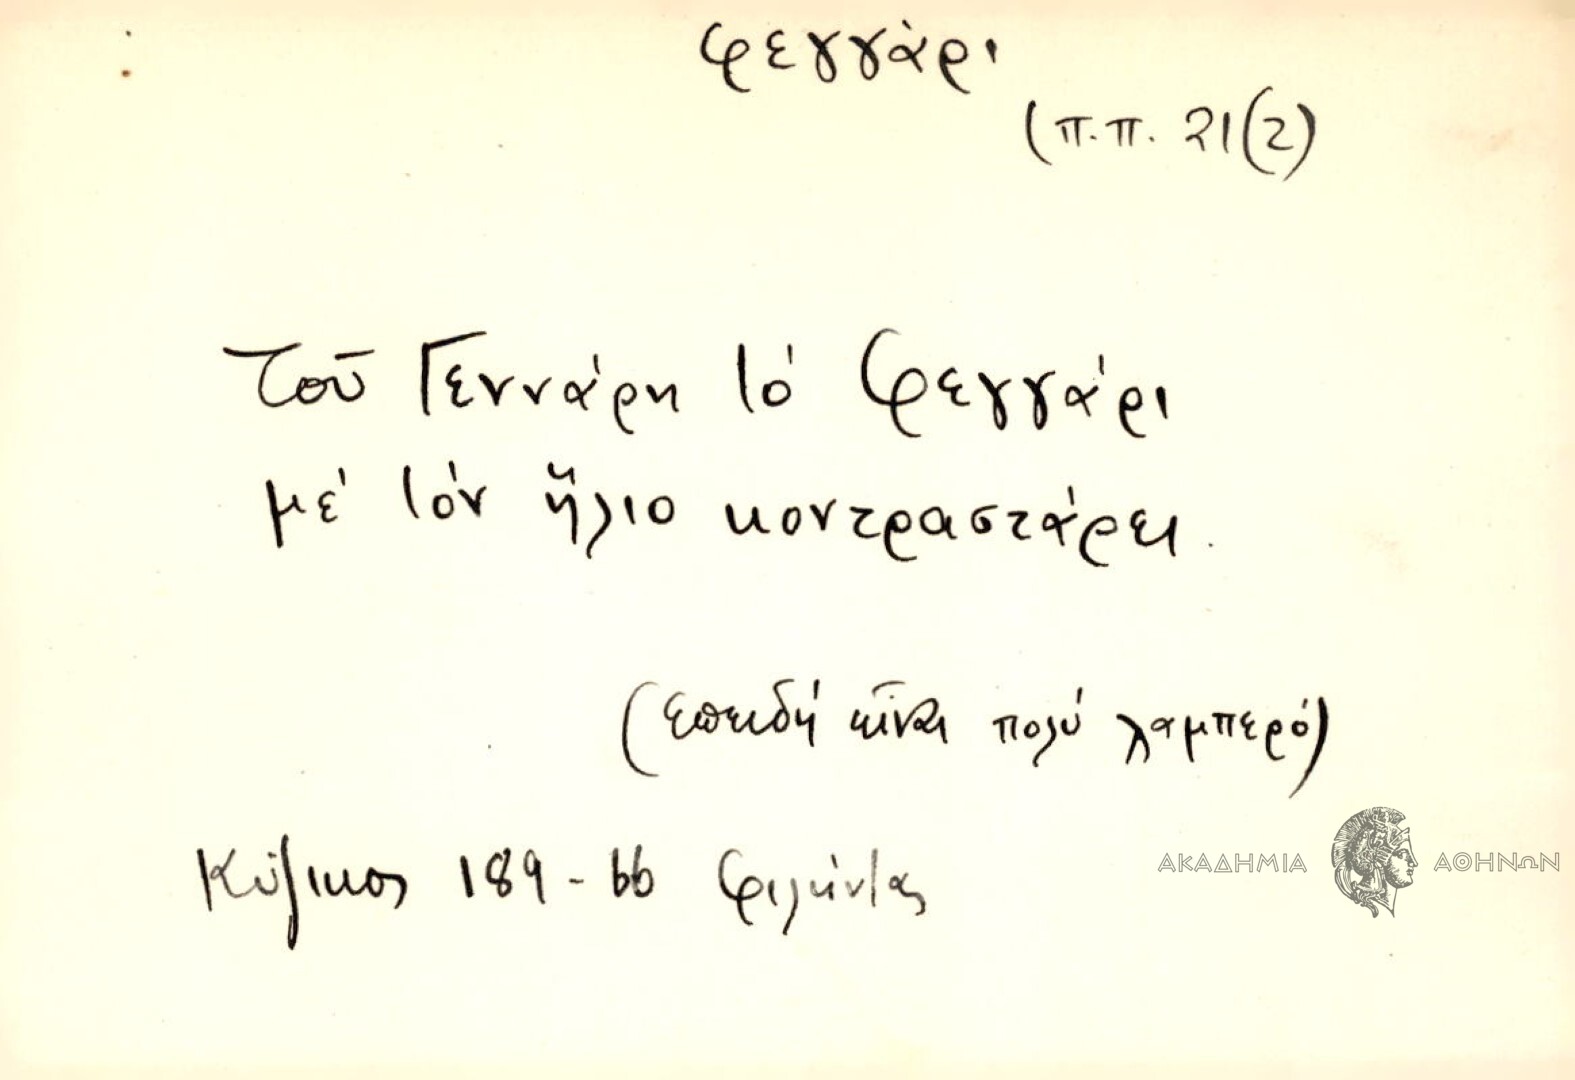 φεγγάρι
(π.π. 21(2)
Τοῦ Γεννάρη τό φεγγάρι
μέ τόν ἥλιο κοντραστάρει.
(ἐπειδή εἶναι πολύ λαμπερό)
Κύζικος 189-66 Φιλήντας
ΑΚΑΔΗΜΙΑ ΑΘΗΝΩΝ